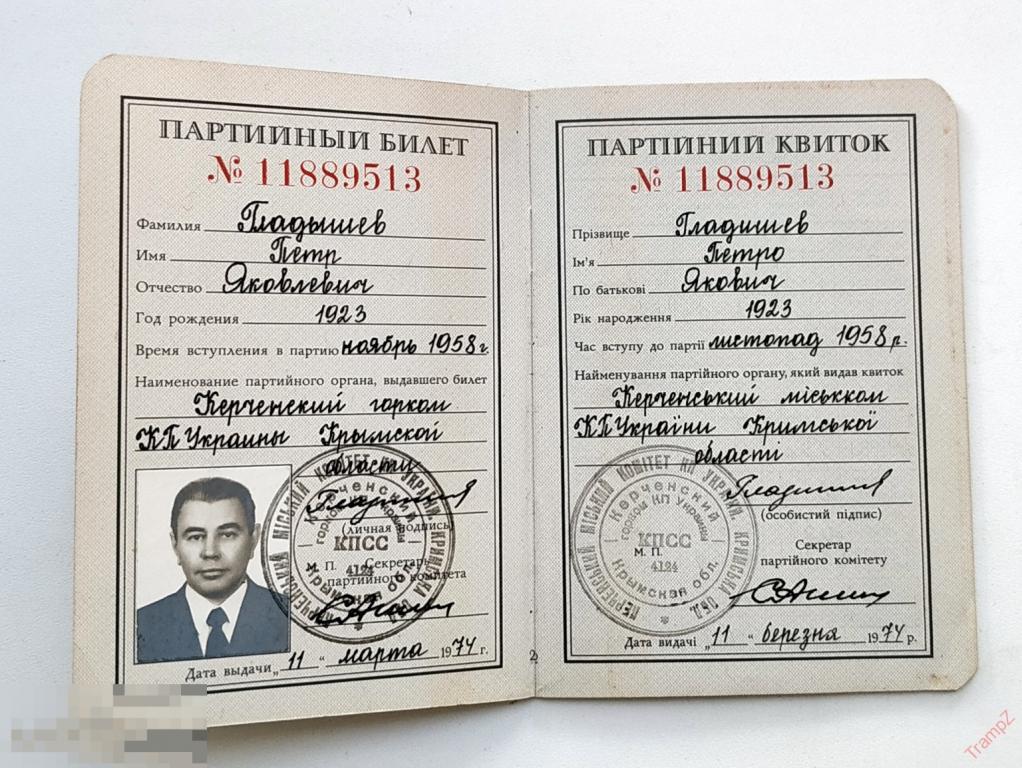 ПАРТИЙНЫЙ БИЛЕТ
№ 11889513
Фамилия Гладышев
Имя Петр
Отчество Яковлевич
Год рождения 1923
Время вступления в партию ноябрь 1958 г.
Наименование партийного органа, выдавшего билет
Керченский горком
КП Украины Крымской
области
(личная подпись)
М. П. Секретарь
партийного комитета
Дата выдачи „11“ марта 1974 г.
2
ПАРТІЙНИЙ КВИТОК
№ 11889513
Прізвище Гладишев
Ім'я Петро
По батькові Якович
Рік народження 1923
Час вступу до партії листопад 1958 р.
Найменування партійного органу, який видав квиток
Керченський міськком
КП України Кримської
області
(особистий підпис)
М. П. Секретар
партійного комітету
Дата видачі „11“ березня 1974 р.
КЕРЧЕНСЬКИЙ МІСЬКИЙ КОМІТЕТ КП УКРАЇНИ, КРИМСЬКА ОБЛ.
Керченский
горком КП Украины
КПСС
4124
Крымская обл.
TrampZ